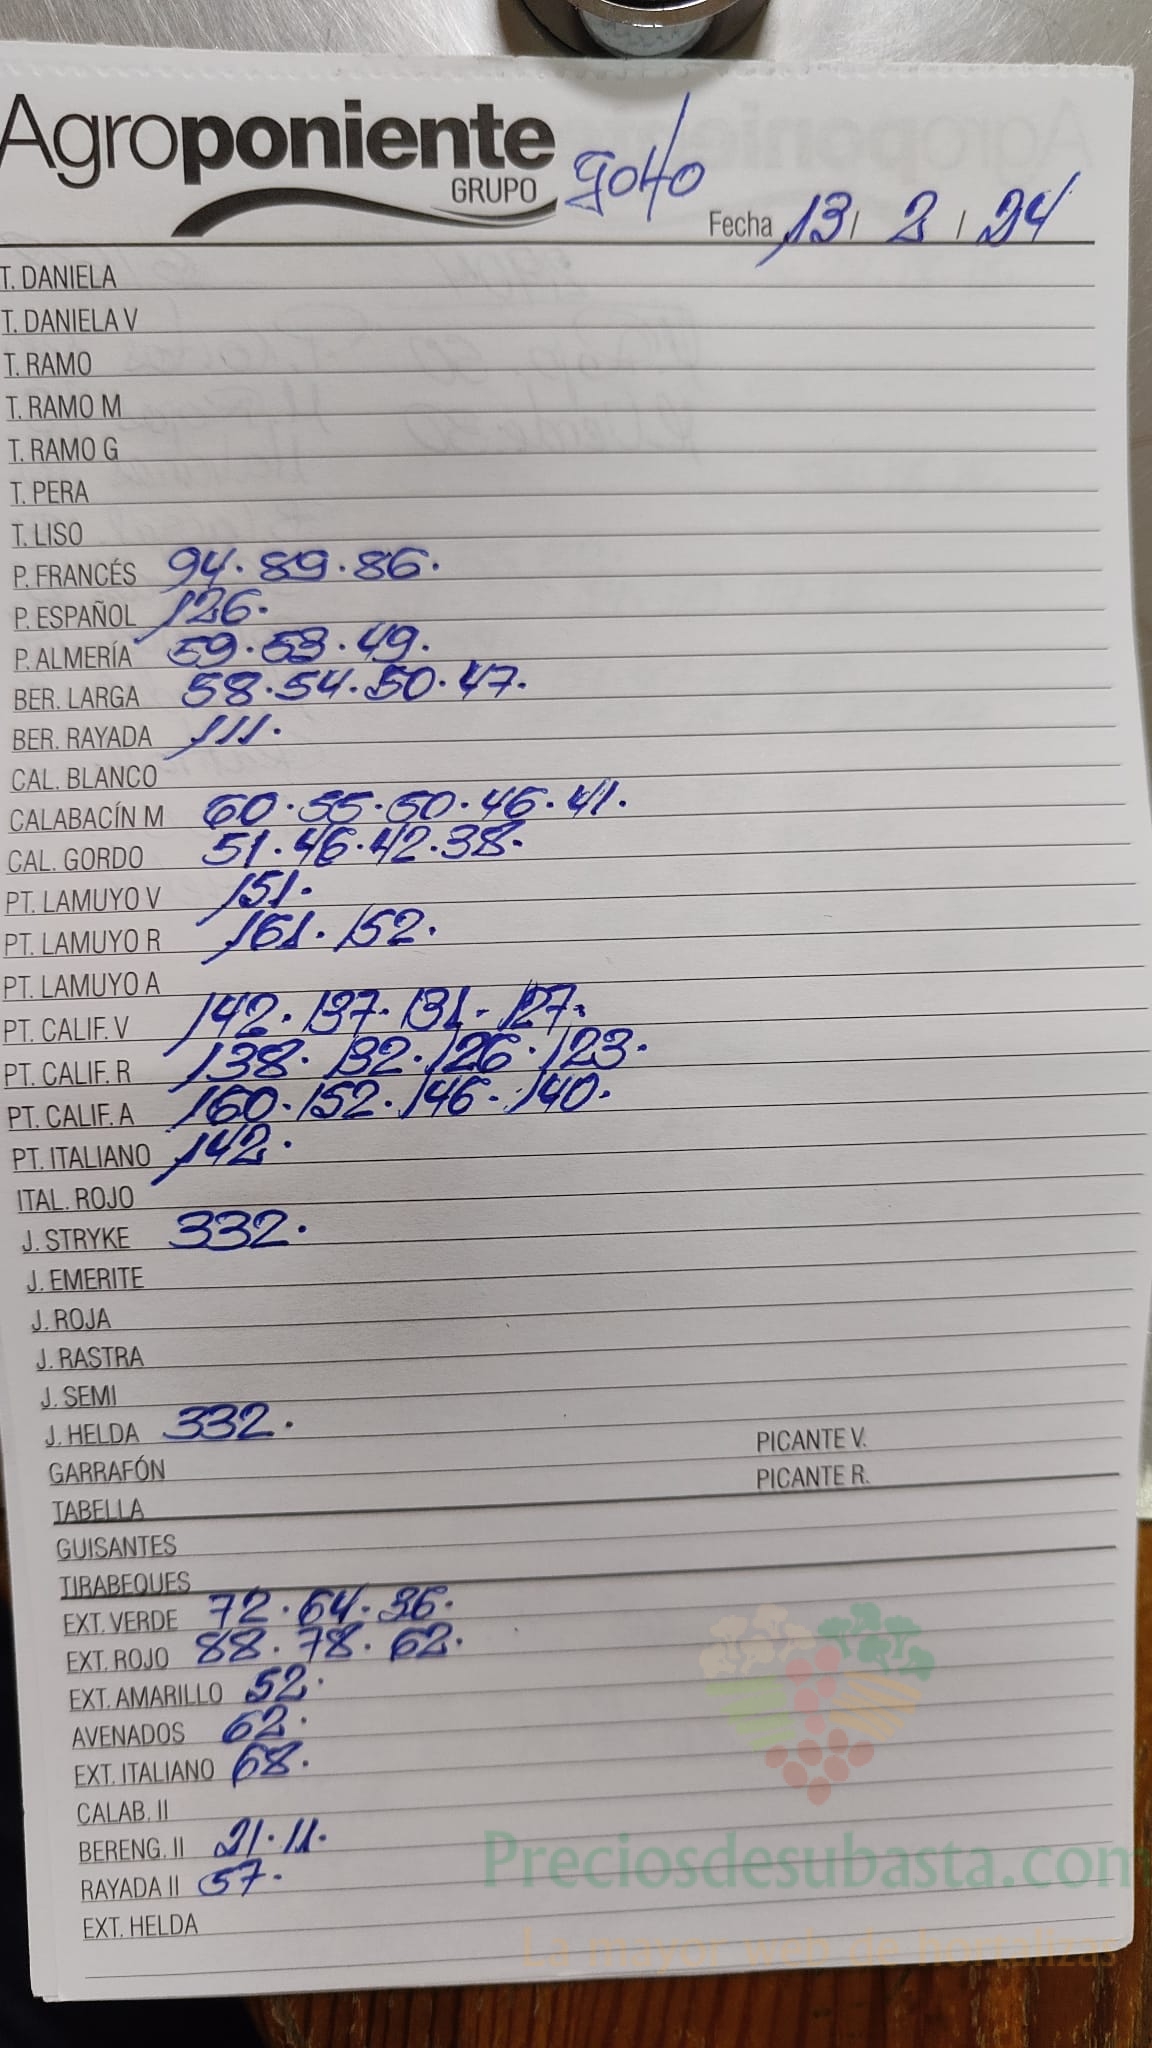 Agroponiente
GRUPO
goHo
Fecha 13 / 2 / 24
T. DANIELA
T. DANIELA V
T. RAMO
T. RAMO M
T. RAMO G
T. PERA
T. LISO
P. FRANCÉS 94. 89. 86.
P. ESPAÑOL 126.
P. ALMERÍA 59. 53. 49.
BER. LARGA 58. 54. 50. 47.
BER. RAYADA 111.
CAL. BLANCO
CALABACÍN M 60. 55. 50. 46. 41.
CAL. GORDO 51. 46. 42. 38.
PT. LAMUYO V 151.
PT. LAMUYO R 161. 152.
PT. LAMUYO A
PT. CALIF. V 142. 137. 131. 127.
PT. CALIF. R 138. 132. 126. 123.
PT. CALIF. A 160. 152. 146. 140.
PT. ITALIANO 142.
ITAL. ROJO
J. STRYKE 332.
J. EMERITE
J. ROJA
J. RASTRA
J. SEMI
J. HELDA 332.
PICANTE V.
GARRAFÓN
PICANTE R.
TABELLA
GUISANTES
TIRABEQUES
EXT. VERDE 72. 64. 36.
EXT. ROJO 88. 78. 62.
EXT. AMARILLO 52.
AVENADOS 62.
EXT. ITALIANO 68.
CALAB. II
BERENG. II 21. 11.
RAYADA II 57.
EXT. HELDA
Preciosdesubasta.com
La mayor web de hortalizas